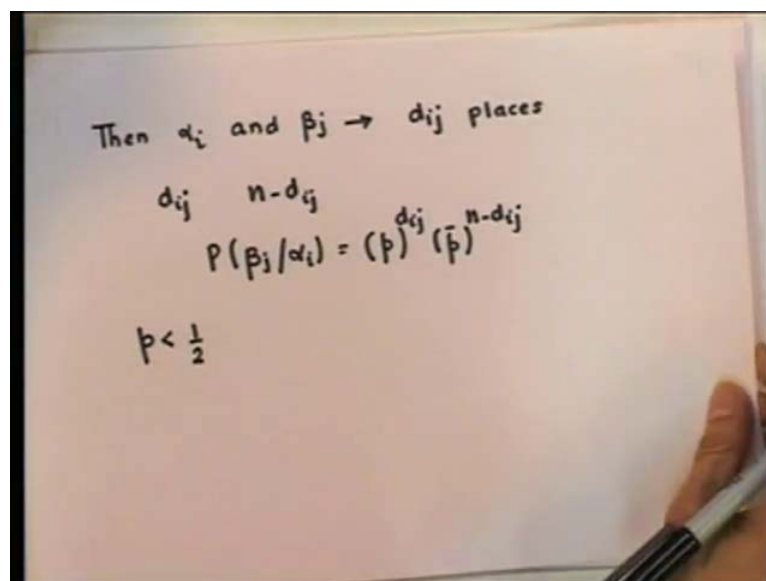 Then αᵢ and βⱼ → dᵢⱼ places
dᵢⱼ n-dᵢⱼ
P(βⱼ/αᵢ) = (p)^dᵢⱼ (p̄)^n-dᵢⱼ
p < 1/2